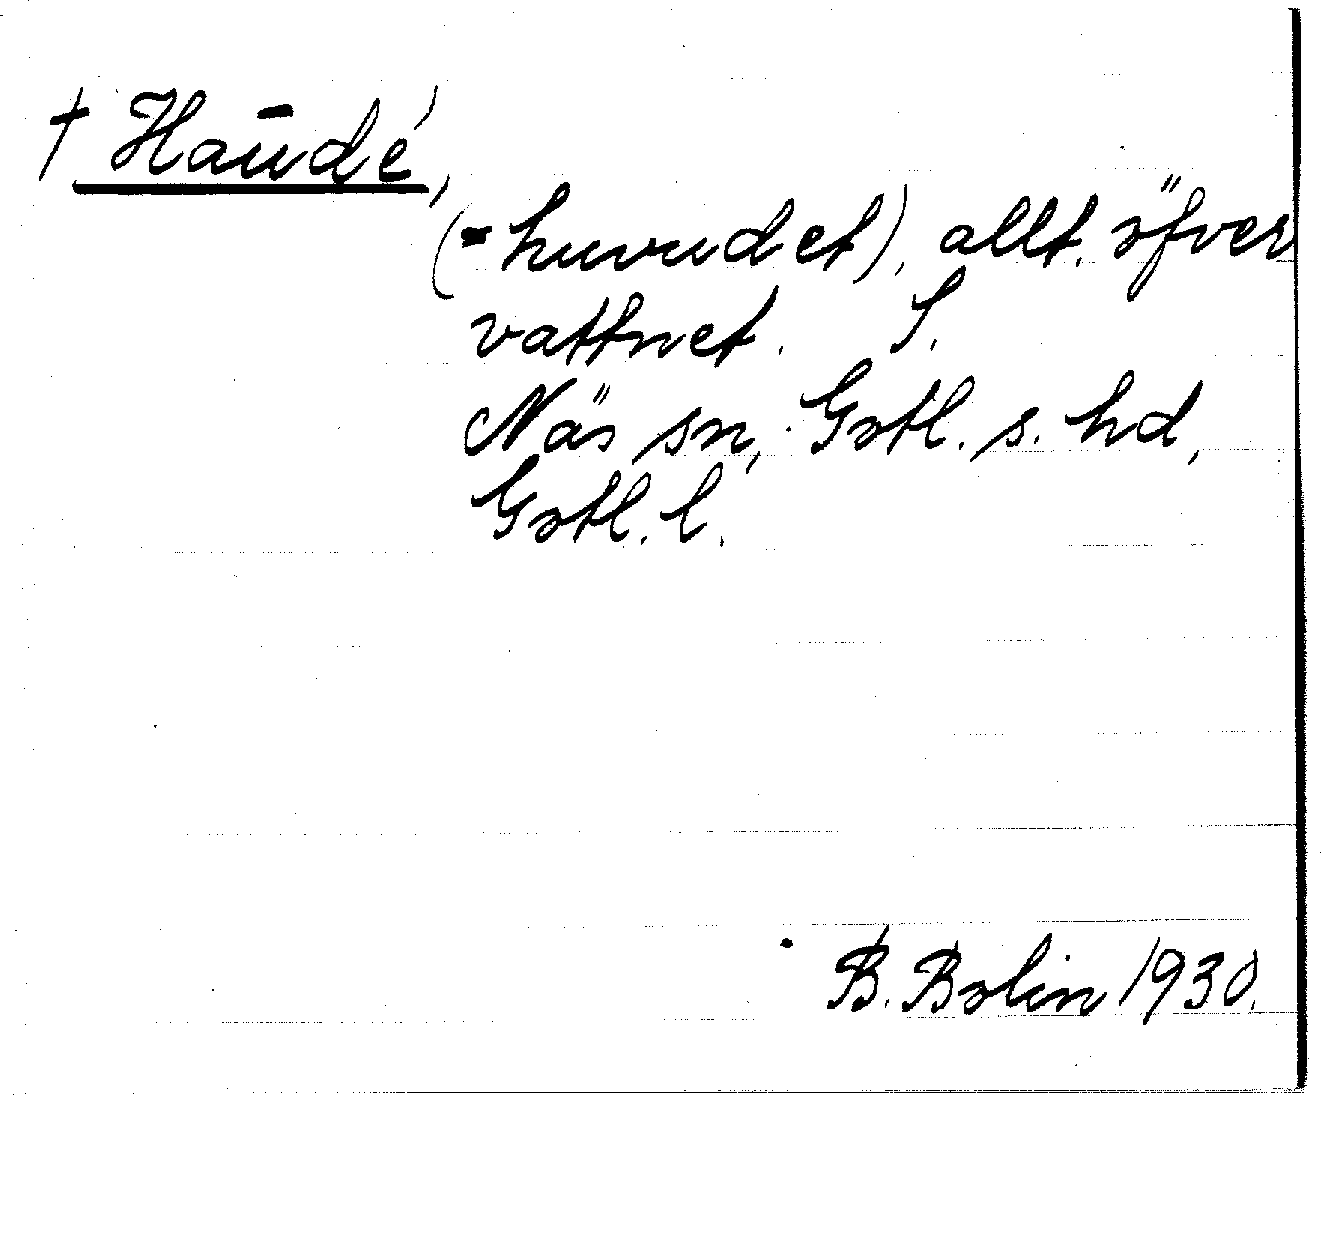 † Haūdé,
(-huvudet), allt. öfver
vattnet. S.
Näs sn, Gotl. s. hd,
Gotl. l.
B. Bolin 1930.